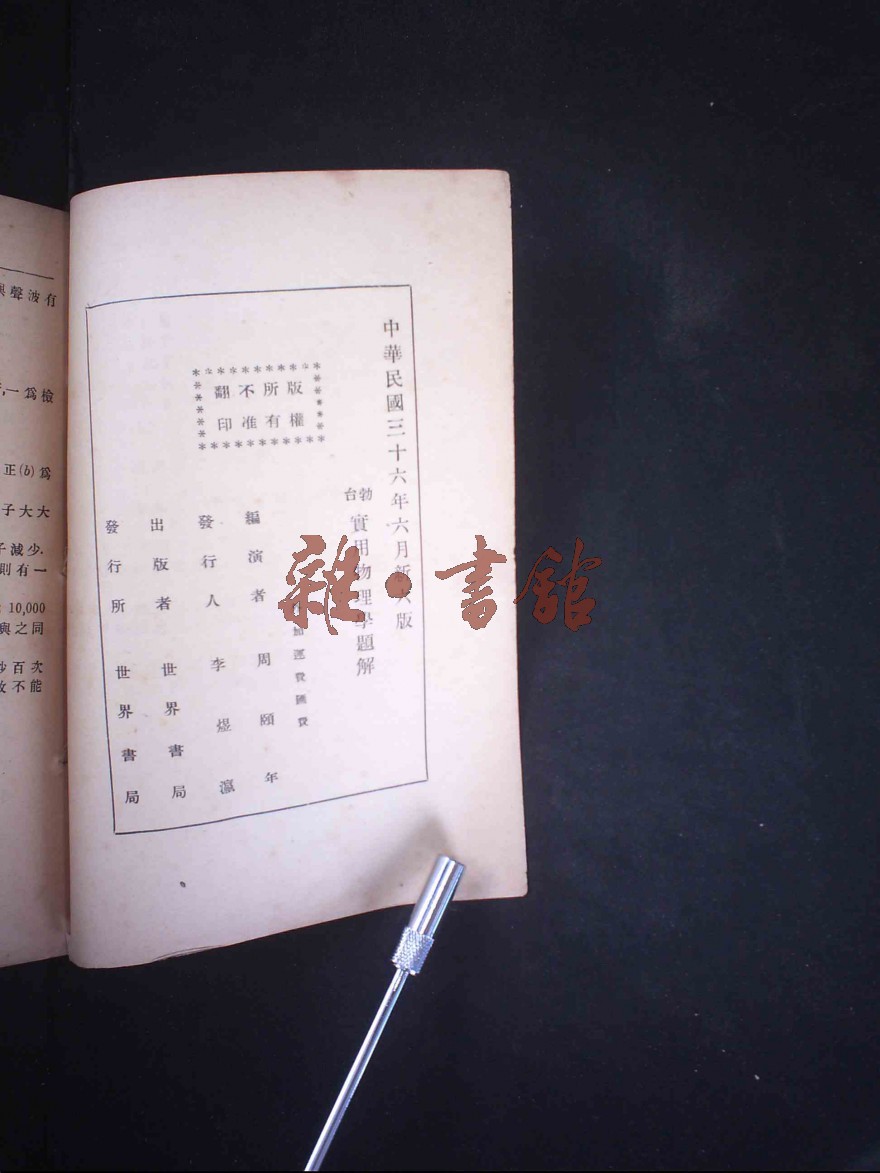 中華民國三十六年六月新六版
勃台實用物理學題解
加運費匯費
版權
所有
不准
翻印
編演者 周頤年
發行人 李煜瀛
出版者 世界書局
發行所 世界書局
雜·書館
聲波有
一爲檢
正(b)爲
子大大
子減少.
則有一
10,000
與之同
秒百次
故不能